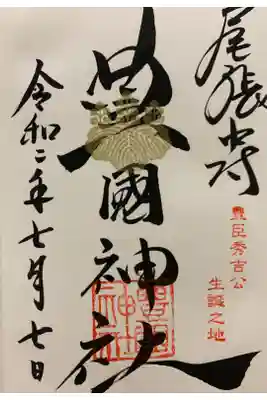 尾張中村
豊臣秀吉公
生誕之地
豊國神社
令和二年七月七日